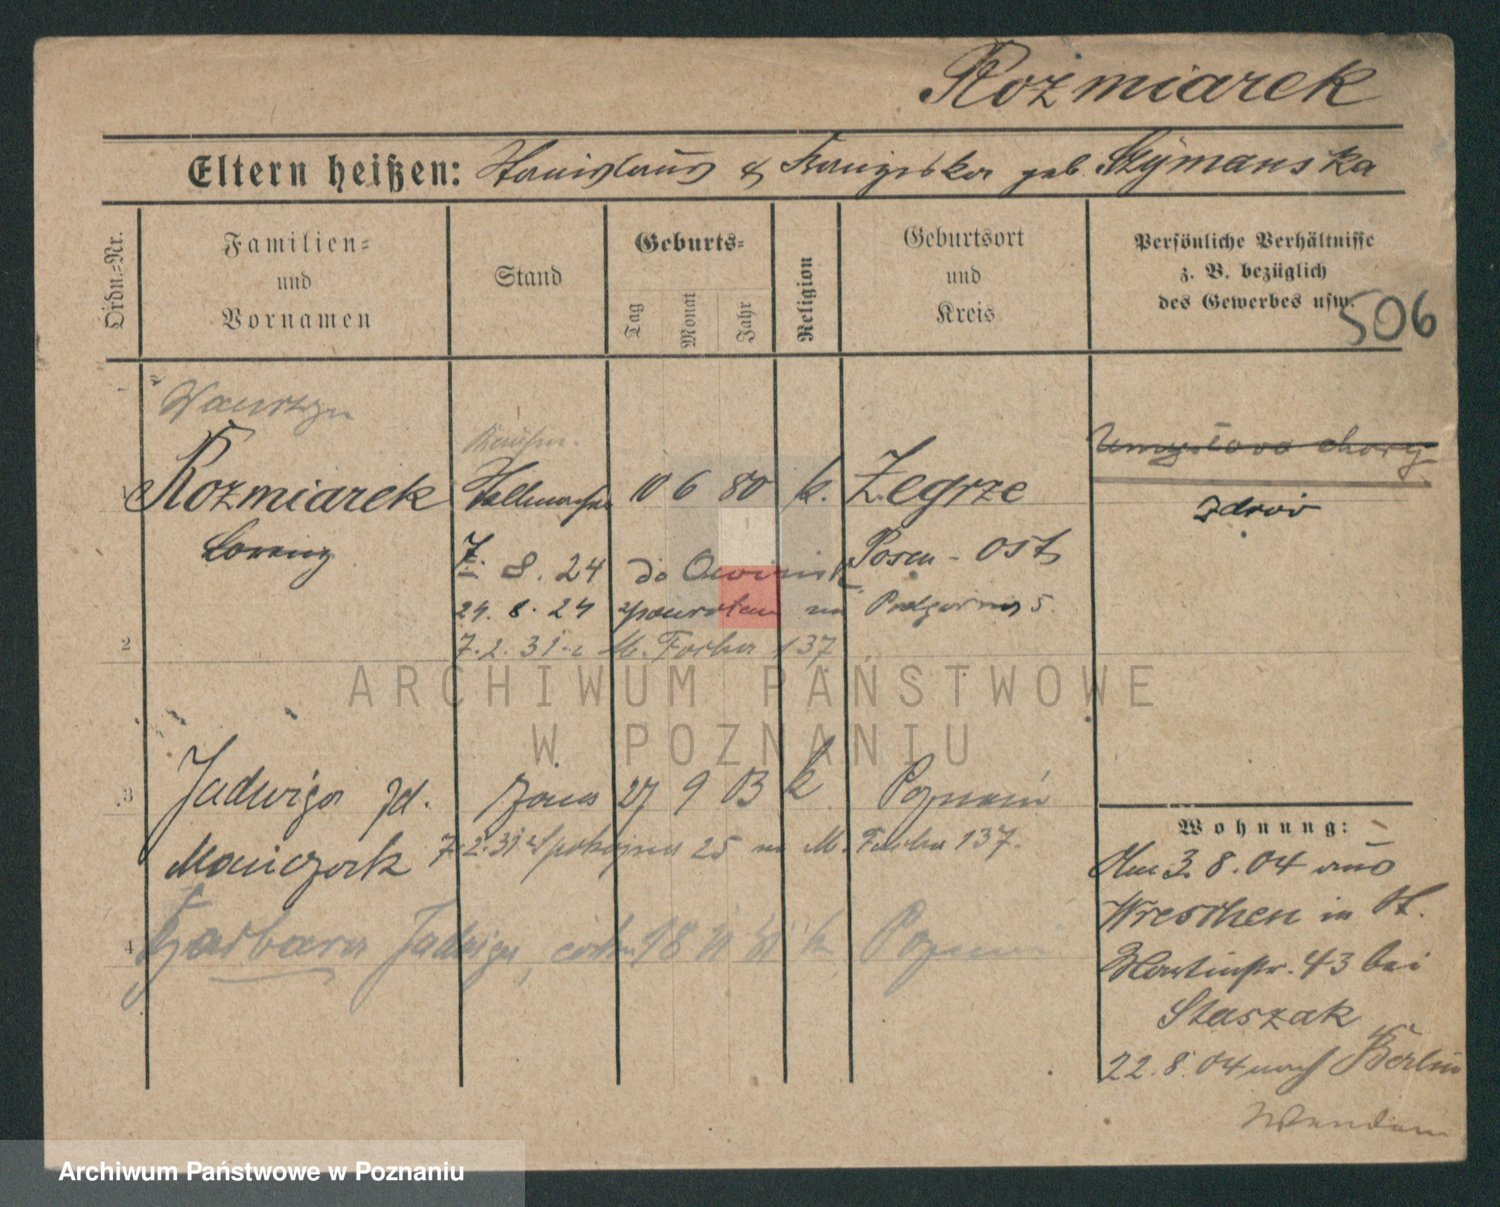 Rożmiarek
Eltern heißen: Stanislaus & Franziska geb. Szymanska
Ordn.-Nr.
Familien- und Vornamen
Stand
Geburts-
Tag
Monat
Jahr
Religion
Geburtsort und Kreis
Persönliche Verhältnisse z. B. bezüglich des Gewerbes usw.
506
Wawrzyn
Rozmiarek
10 6 80 k. Zegrze
Umysłowo chory
Lorenz
zdrów
Posen - Ost
7. 8. 24 do Owinisk
29. 8. 24 na Podgórna 5.
2
7. 2. 31. M. Focha 137
3 Jadwiga żona 27 9 03 k Poznań
7. 2. 31 Spokojna 25 na M. Focha 137.
4 Barbara Jadwiga, 18 k Poznań
Wohnung:
Am 3. 8. 04 aus
Wreschen in St.
Martinstr. 43 bei
Staszak
22. 8. 04 nach Berlin
ARCHIWUM PAŃSTWOWE
W POZNANIU
Archiwum Państwowe w Poznaniu